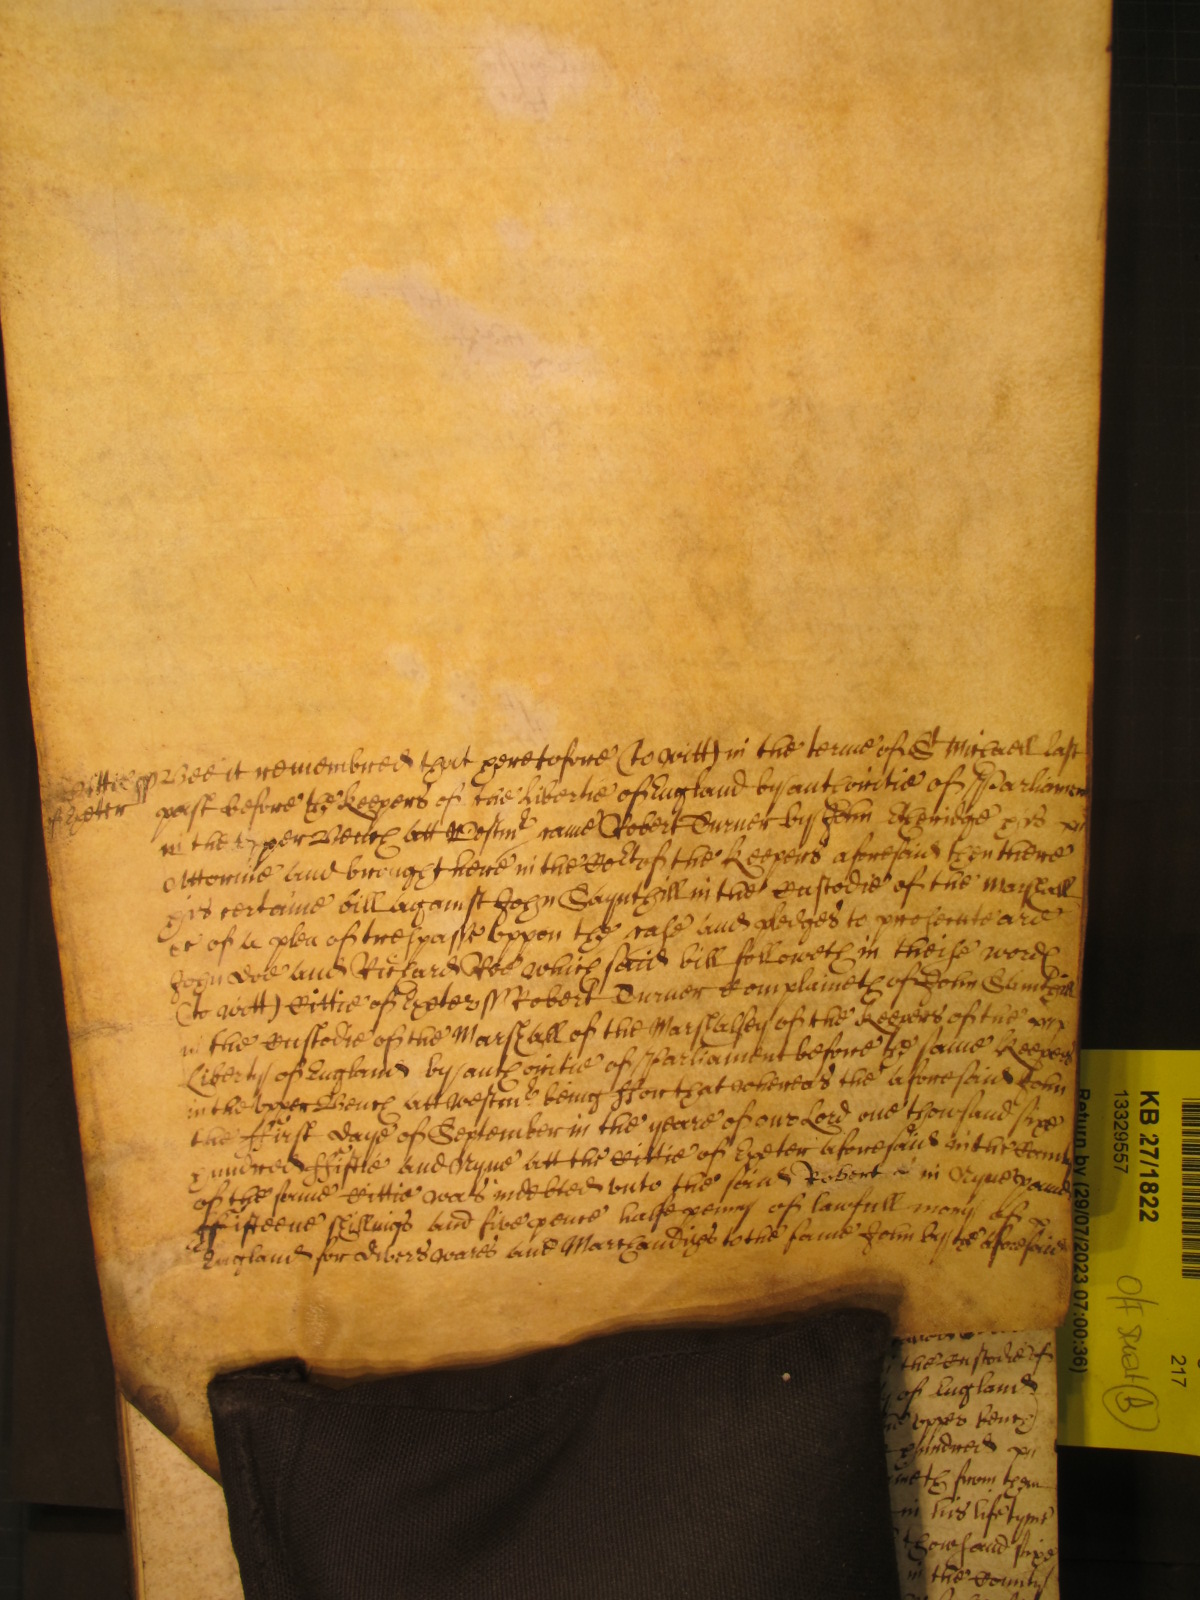 Cittie of Exeter ss
Bee it remembred that heretofore (to witt) in the terme of St Michaell last
past before the Keepers of the Libertie of England by authoritie of Parliament
in the upper Bench att Westmr came Robert Turner by John his
Attornie and brought here in the Cort of the Keepers aforesaid then there
his certaine bill against John Saynthill in the custodie of the Marshall
&c of a plea of trespasse uppon the case and pledges to prosecute are
John Doe and Richard Roe which said bill followeth in theise words
(to witt) Cittie of Exeter ss Robert Turner complaineth of John Sainthill
in the custodie of the Marshall of the Marshalsey of the Keepers of the
Liberty of England by authoritie of Parliament before the same Keepers
in the upper Bench att Westmr being ffor that whereas the aforesaid John
the ffirst daye of September in the yeare of our Lord one thowsand sixe
hundred ffiftie and Nyne att the Cittie of Exeter aforesaid in the County
of the same Cittie was indebted unto the said Robert in Nyne pounds
ffifteene shillings and five pence halfe penny of lawfull mony of
England for divers wares and Marchandizes to the same John by the aforesaid
the custodie of
of England
upper bench
hundred
from them
in his life tyme
thowsand sixe
in the County
KB 27/1822
13329557
Return by (29/07/2023 07:00:36)
217